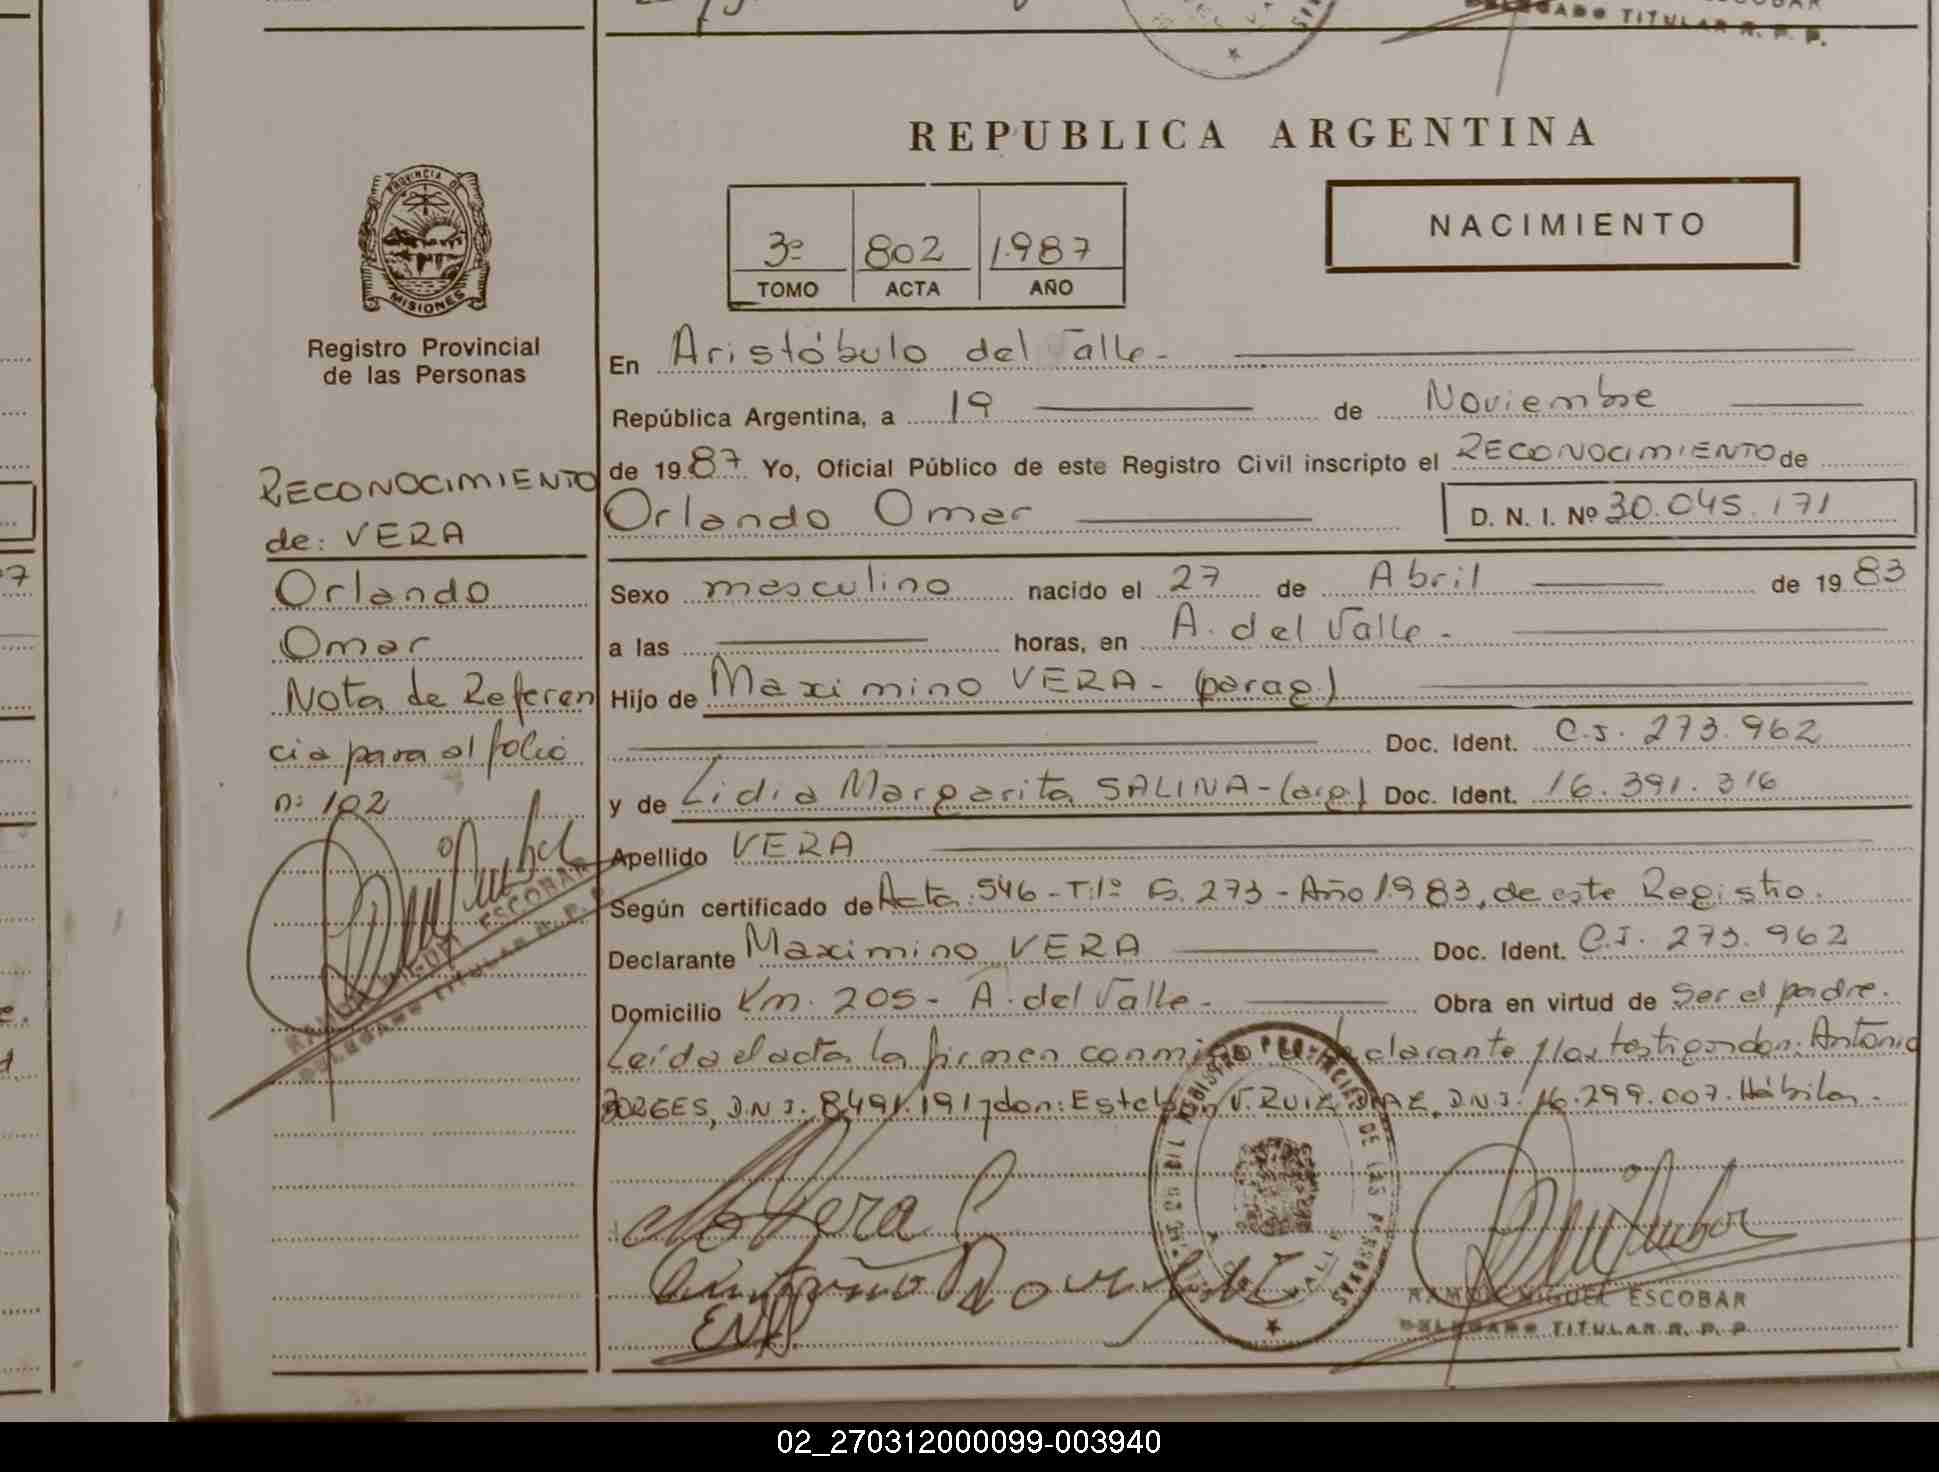 DELEGADO TITULAR R. P. P.
REPUBLICA ARGENTINA
NACIMIENTO
3º 802 1.987
TOMO ACTA AÑO
PROVINCIA DE
MISIONES
Registro Provincial
de las Personas
RECONOCIMIENTO
de: VERA
Orlando
Omar
Nota de Referen
cia para al folio
nº 102
RAMON MIGUEL ESCOBAR
DELEGADO TITULAR R. P. P.
En Aristóbulo del Valle.
República Argentina, a 19 de Noviembre
de 1987 Yo, Oficial Público de este Registro Civil inscripto el RECONOCIMIENTO de
Orlando Omar D. N. I. Nº 30.045.171
Sexo masculino nacido el 27 de Abril de 1983
a las horas, en A. del Valle.
Hijo de Maximino VERA - (parag.)
Doc. Ident. C.I. 273.962
y de Lidia Margarita SALINA - (arg) Doc. Ident. 16.391.316
Apellido VERA
Según certificado de Acta: 546 - T:1º F. 273 - Año 1.983, de este Registro.
Declarante Maximino VERA Doc. Ident. C.I. 273.962
Domicilio Km. 205 - A. del Valle. Obra en virtud de Ser el padre.
Leída el acta la firmen conmigo el declarante y los testigos don: Antonio
BORGES, D.N.I. 8491.191 y don: Esteban V. RUIZ DIAZ, D.N.I. 16.299.007. Hábiles.
REGISTRO PROVINCIAL DE LAS PERSONAS
RAMON MIGUEL ESCOBAR
DELEGADO TITULAR R. P. P.
02_270312000099-003940